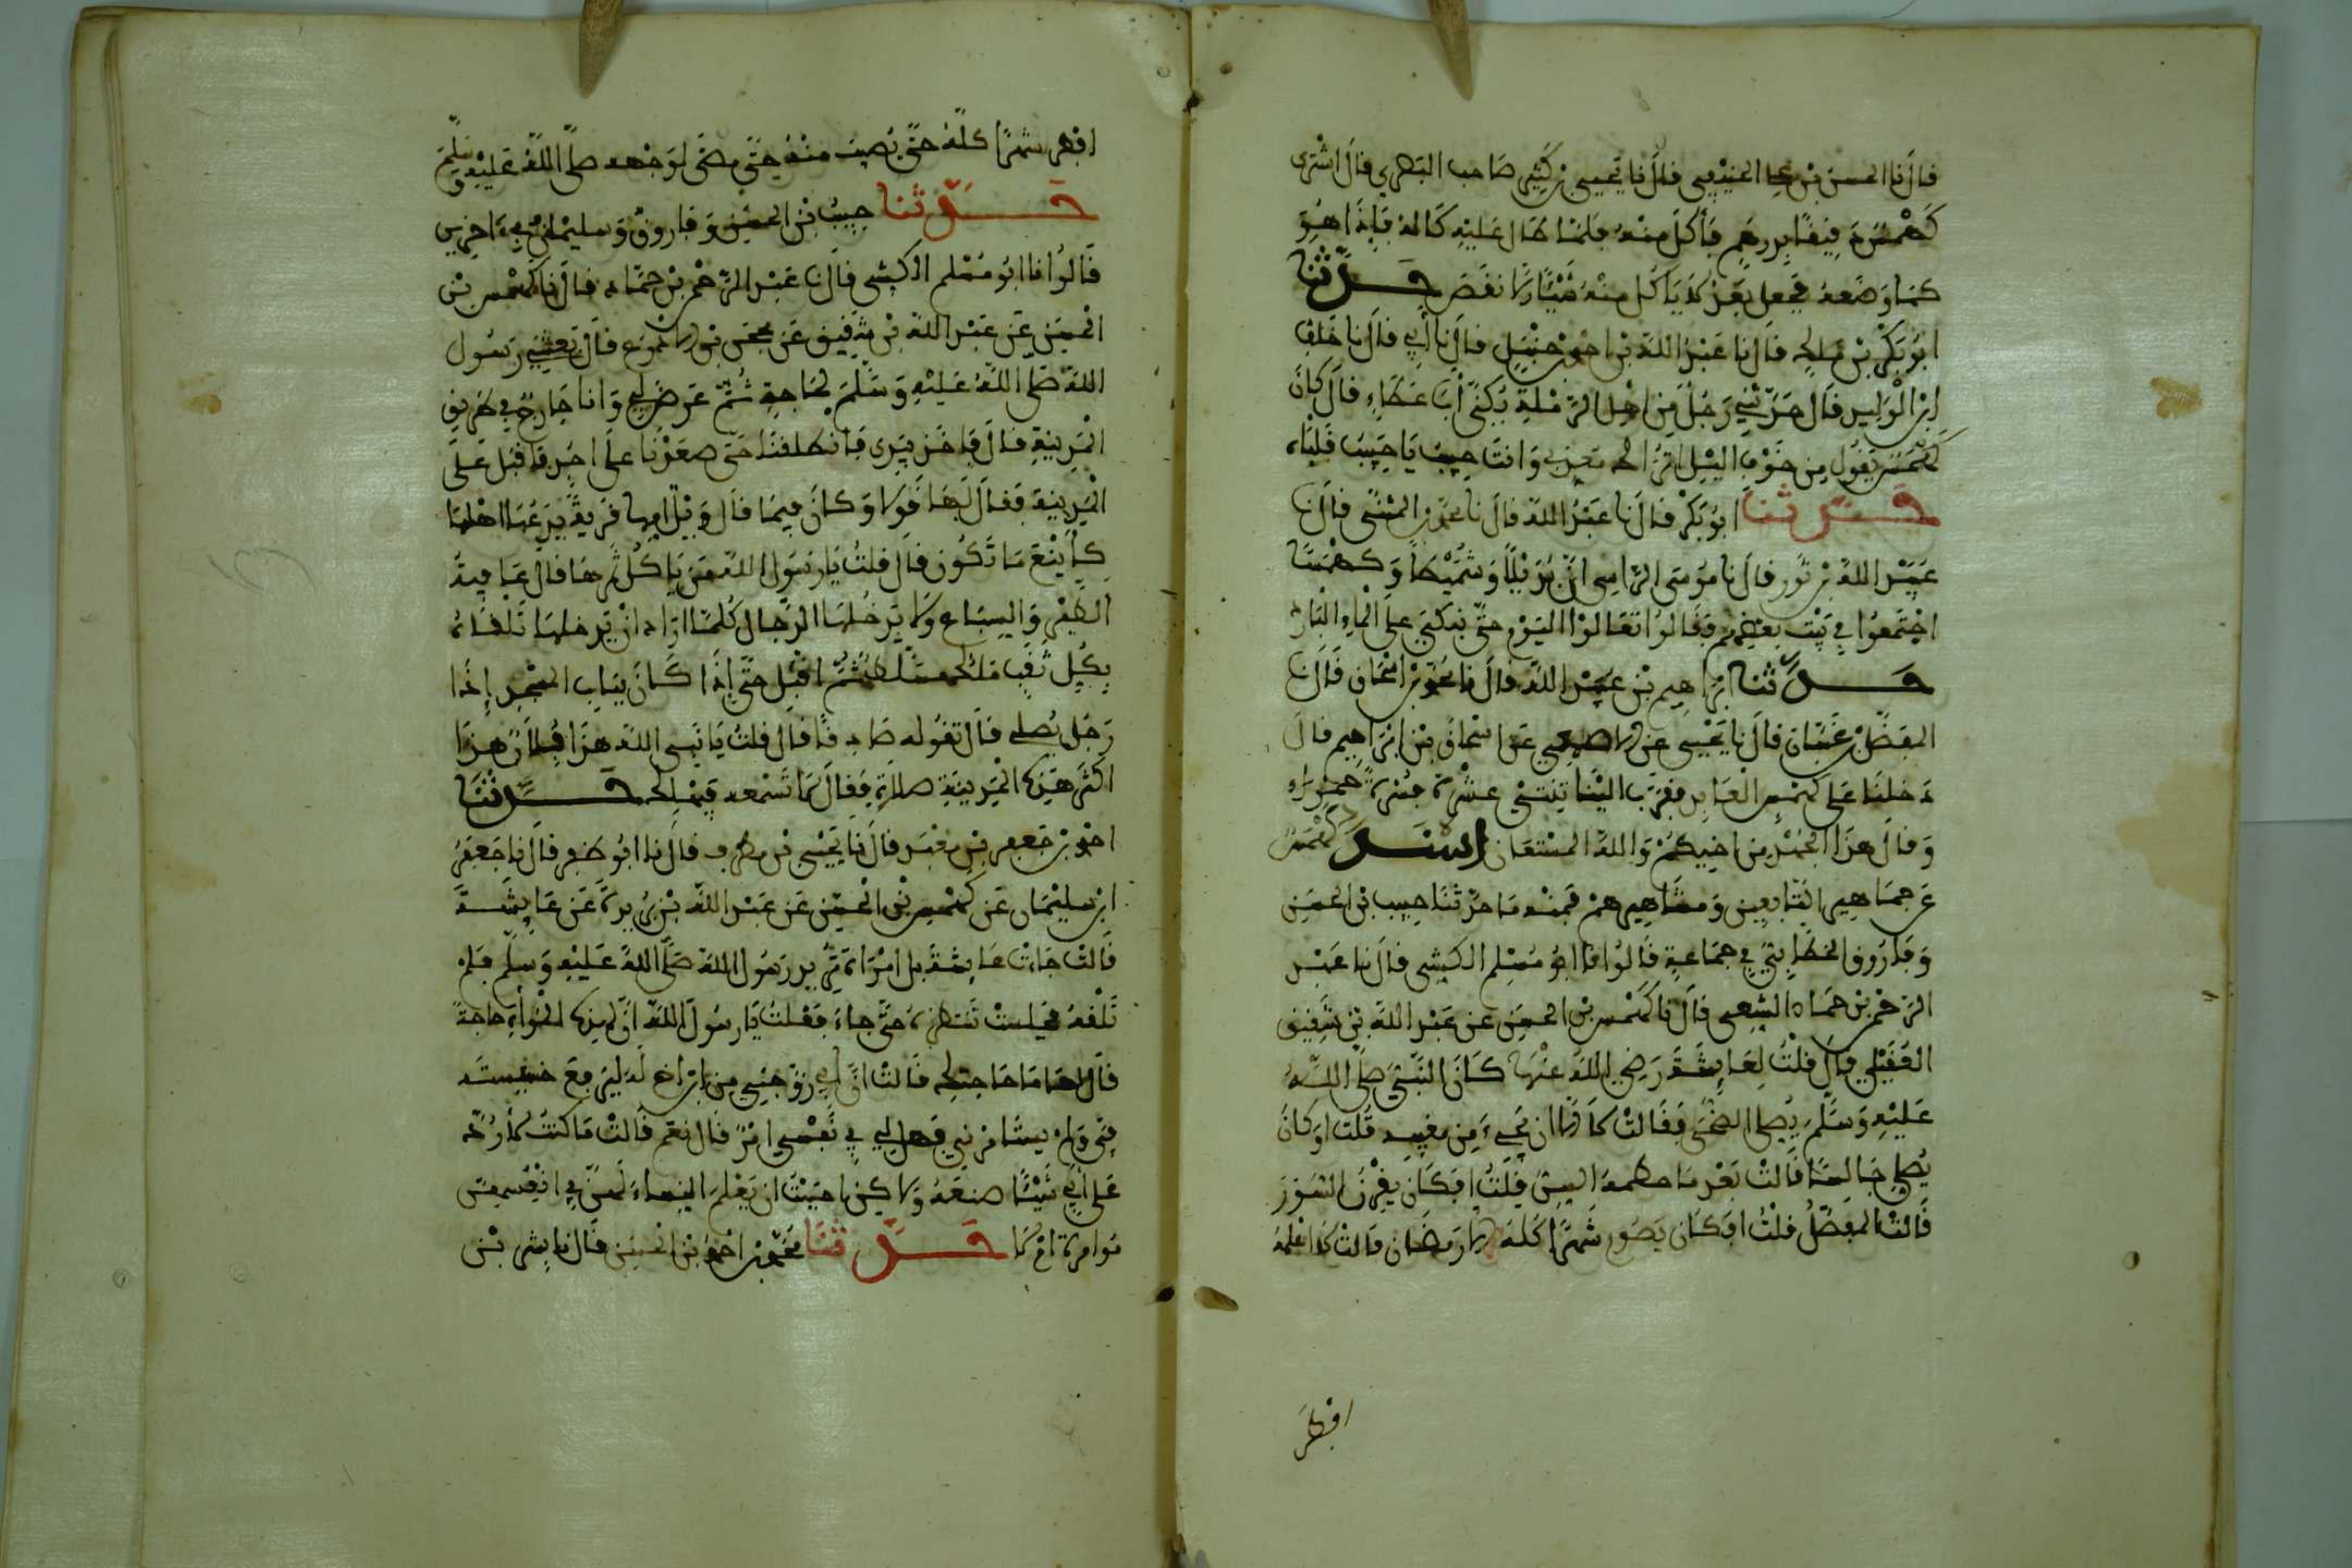 قال نا الحسن بن علي الحنيفي قال نا يحيى بن كثير صاحب البصري قال اشترى
كهمس دقيقا بدرهم فأكل منه فلما طال عليه كاله فإذا هو
كما وضعه فجعل بعد لا ياكل منه شيئا إلا نقص حدثنا
ابو بكر بن ملك قال نا عبد الله بن احمد بن حنبل قال نا أبي قال نا خلف
ابن الوليد قال حدثني رجل من اهل الرملة يكنى أبا عطاء قال كان
كهمس يقول من جوف الليل اتراك معذبي وانت حبيب يا حبيب قلباه
حدثنا ابو بكر قال نا عبد الله قال نا محمد بن المثنى قال نا
عبيد الله بن ثور قال نا موسى الراسبي ان بديلا وشميطا وكهمسا
اجتمعوا في بيت بعضهم فقالوا تعالوا اليوم حتى نبكي على الماء البارد
حدثنا ابراهيم بن عبد الله قال نا محمد بن اسحاق قال نا
المفضل بن غسان قال نا يحيى عن الاصمعي عن اسحاق بن ابراهيم قال
دخلنا على كهمس العابد فقرب الينا اثنتي عشرة بسرة حمراء
وقال هذا الجهد من اخيكم والله المستعان اسند كهمس
عن جماهير التابعين ومشاهيرهم فمنه ما حدثنا حبيب بن الحسن
وفاروق الخطابي في جماعة قالوا نا ابو مسلم الكشي قال نا عبد
الرحمن بن حماد الشعبي قال نا كهمس بن الحسن عن عبد الله بن شقيق
العقيلي قال قلت لعايشة رضي الله عنها كان النبي صلى الله
عليه وسلم يصلي الضحى فقالت لا الا ان يجيء من مغيبه قلت اوكان
يصلي جالسا قالت بعد ما حطمه السن قلت افكان يقرن السور
قالت المفصل قلت افكان يصوم شهرا كله الا رمضان قالت لا اعلمه
افطر
افطر شهرا كله حتى يصيب منه حتى مضى لوجهه صلى الله عليه وسلم
حدثنا حبيب بن الحسن وفاروق وسليمان في ءاخرين
قالوا نا ابو مسلم الكشي قال نا عبد الرحمن بن حماد قال نا كهمس بن
الحسن عن عبد الله بن شقيق عن محجن بن الادرع قال بعثني رسول
الله صلى الله عليه وسلم لحاجة ثم عرض لي وانا خارج في طريق
المدينة قال فاخذ بيدي فانطلقنا حتى صعدنا على احد فاقبل على
المدينة فقال لها قولا وكان فيما قال ويل امها قرية يدعها اهلها
كأينع ما تكون قال قلت يا رسول الله من ياكل ثمرها قال عافية
الطير والسباع ولا يدخلها الدجال كلما اراد ان يدخلها تلقاه
بكل نقب ملك مسلط ثم اقبل حتى إذا كان بباب المسجد إذا
رجل يصلي قال تقوله صادقا قال قلت يا نبي الله هذا فلان هذا
اكثر هذه المدينة صلاة فقال لا تسمعه فيهلك حدثنا
احمد بن جعفر بن معبد قال نا يحيى بن مطرف قال نا ابو ظفر قال نا جعفر
ابن سليمان عن كهمس بن الحسن عن عبد الله بن بريدة عن عايشة
قالت جاءت عايشة بل امراة تريد رسول الله صلى الله عليه وسلم فلم
تلقه فجلست تنتظره حتى جاء فقلت يا رسول الله ان لهذه المرأة حاجة
قال لها ما حاجتك قالت ان أبي زوجني من ابن اخ له ليرفع خسيسته
بي ولم يستامرني فهل لي في نفسي امر قال نعم قالت ما كنت لأرد
على أبي شيئا صنعه ولاكن احببت ان يعلم النساء لهن في انفسهن
موامرة ام لا حدثنا محمد بن احمد بن الحسن قال نا بشر بن